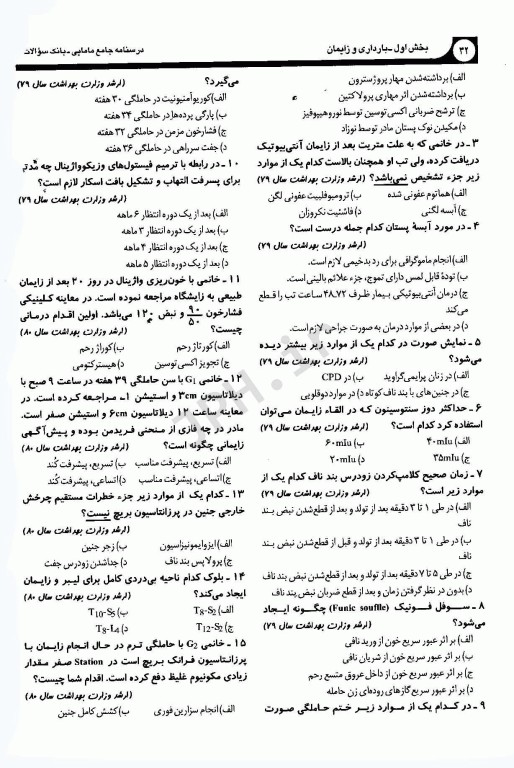 ۳۲
بخش اول-بارداری و زایمان
درسنامه جامع مامایی-بانک سؤالات
الف) برداشته‌شدن مهار پروژسترون
ب) برداشته‌شدن اثر مهاری پرولاکتین
ج) ترشح ضربانی اکسی توسین توسط نوروهیپوفیز
د) مکیدن نوک پستان مادر توسط نوزاد
۳ ـ در خانمی که به علت متریت بعد از زایمان آنتی‌بیوتیک
دریافت کرده، ولی تب او همچنان بالاست کدام یک از موارد
زیر جزء تشخیص نمی‌باشد؟ (ارشد وزارت بهداشت سال ۷۹)
الف) هماتوم عفونی شده ب) ترومبوفلبیت عفونی لگن
ج) آبسه لگنی د) فاشئیت نکروزان
۴ ـ در مورد آبسهٔ پستان کدام جمله درست است؟
(ارشد وزارت بهداشت سال ۷۹)
الف) انجام ماموگرافی برای رد بدخیمی لازم است.
ب) تودهٔ قابل لمس دارای تموج، جزء علائم بالینی است.
ج) درمان آنتی‌بیوتیکی بیمار ظرف ۴۸،۷۲ ساعت تب را قطع
می‌کند
د) در بعضی از موارد درمان به صورت جراحی لازم است.
۵ ـ نمایش صورت در کدام یک از موارد زیر بیشتر دیده
می‌شود؟ (ارشد وزارت بهداشت سال ۷۹)
الف) در زنان پرایمی‌گراوید ب) در CPD
ج) در جنین‌های با بند ناف کوتاه د) در موارد دوقلویی
۶ ـ حداکثر دوز سنتوسینون که در القاء زایمان می‌توان
استفاده کرد کدام است؟ (ارشد وزارت بهداشت سال ۷۹)
الف) ۴۰mIu ب) ۶۰mIu
ج) ۳۵mIu د) ۲۰mIu
۷ ـ زمان صحیح کلامپ‌کردن زودرس بند ناف کدام یک از
موارد زیر است؟ (ارشد وزارت بهداشت سال ۷۹)
الف) در طی ۱ تا ۳ دقیقه بعد از تولد و بعد از قطع‌شدن نبض بند
ناف
ب) در طی ۱ تا ۳ دقیقه بعد از تولد و قبل از قطع‌شدن نبض بند
ناف
ج) در طی ۵ تا ۷ دقیقه بعد از تولد و بعد از قطع‌شدن نبض بند ناف
د) بدون در نظر گرفتن زمان و بعد از قطع‌شدن ضربان نبض بند ناف
۸ ـ سوفل فونیک (Funic souffle) چگونه ایجاد
می‌شود؟ (ارشد وزارت بهداشت سال ۷۹)
الف) بر اثر عبور سریع خون از ورید نافی
ب) بر اثر عبور سریع خون از شریان نافی
ج) بر اثر عبور سریع خون از داخل عروق متسع رحم
د) بر اثر عبور سریع گازهای روده‌ای زن حامله
۹ ـ در کدام یک از موارد زیر ختم حاملگی صورت
می‌گیرد؟ (ارشد وزارت بهداشت سال ۷۹)
الف) کوریوآمنیونیت در حاملگی ۳۰ هفته
ب) پارگی پرده‌ها در حاملگی ۳۴ هفته
ج) فشارخون مزمن در حاملگی ۳۲ هفته
د) جفت سرراهی در حاملگی ۳۶ هفته
۱۰ ـ در رابطه با ترمیم فیستول‌های وزیکوواژینال چه مدتی
برای پسرفت التهاب و تشکیل بافت اسکار لازم است؟
(ارشد وزارت بهداشت سال ۷۹)
الف) بعد از یک دوره انتظار ۶ ماهه
ب) بعد از یک دوره انتظار ۳ ماهه
ج) بعد از یک دوره انتظار ۴ ماهه
د) بعد از یک دوره انتظار ۵ ماهه
۱۱ ـ خانمی با خون‌ریزی واژینال در روز ۲۰ بعد از زایمان
طبیعی به زایشگاه مراجعه نموده است. در معاینه کلینیکی
فشارخون ۹۰/۵۰ و نبض ۱۲۰ می‌باشد. اولین اقدام درمانی
چیست؟ (ارشد وزارت بهداشت سال ۸۰)
الف) کورتاژ رحم ب) کوراژ رحم
ج) تجویز اکسی توسین د) هیسترکتومی
۱۲ ـ خانمی G۱ با سن حاملگی ۳۹ هفته در ساعت ۹ صبح با
دیلاتاسیون ۳cm و استیشن ۱- مراجعه کرده است. در
معاینه ساعت ۱۲ دیلاتاسیون ۶cm و استیشن صفر است.
مادر در چه فازی از منحنی فریدمن بوده و پیش‌آگهی
زایمانی چگونه است؟ (ارشد وزارت بهداشت سال ۸۰)
الف) تسریع، پیشرفت مناسب ب) تسریع، پیشرفت کُند
ج) اتساعی، پیشرفت مناسب د) اتساعی، پیشرفت کُند
۱۳ ـ کدام یک از موارد زیر جزء خطرات مستقیم چرخش
خارجی جنین در پرزانتاسیون بریچ نیست؟
(ارشد وزارت بهداشت سال ۸۰)
الف) ایزوایمونیزاسیون ب) زجر جنین
ج) پرولاپس بند ناف د) جداشدن زودرس جفت
۱۴ ـ بلوک کدام ناحیه بی‌دردی کامل برای لیبر و زایمان
ایجاد می‌کند؟ (ارشد وزارت بهداشت سال ۸۰)
الف) T8-S2 ب) T10-S5
ج) T12-S2 د) T8-L4
۱۵ ـ خانمی G2 با حاملگی ترم در حال انجام زایمان با
پرزانتاسیون فرانک بریچ است در Station صفر مقدار
زیادی مکونیوم غلیظ دفع کرده است. اقدام شما چیست؟
(ارشد وزارت بهداشت سال ۸۰)
الف) انجام سزارین فوری ب) کشش کامل جنین